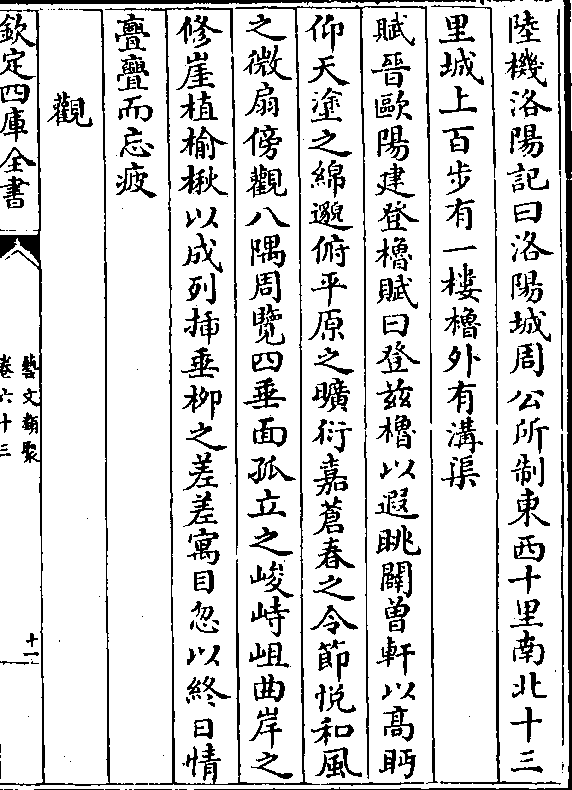 陸機洛陽記曰洛陽城周公所制東西十里南北十三
里城上百步有一樓櫓外有溝渠
賦晉歐陽建登櫓賦曰登兹櫓以遐眺闢曾軒以高眄
仰天塗之綿邈俯平原之曠衍嘉蒼春之令節悦和風
之微扇傍觀八隅周覽四垂面孤立之峻峙岨曲岸之
修崖植榆楸以成列揷垂栁之差差寓目忽以終日情
亹亹而忘疲
觀
欽定四庫全書
藝文類聚
卷六十三
十一